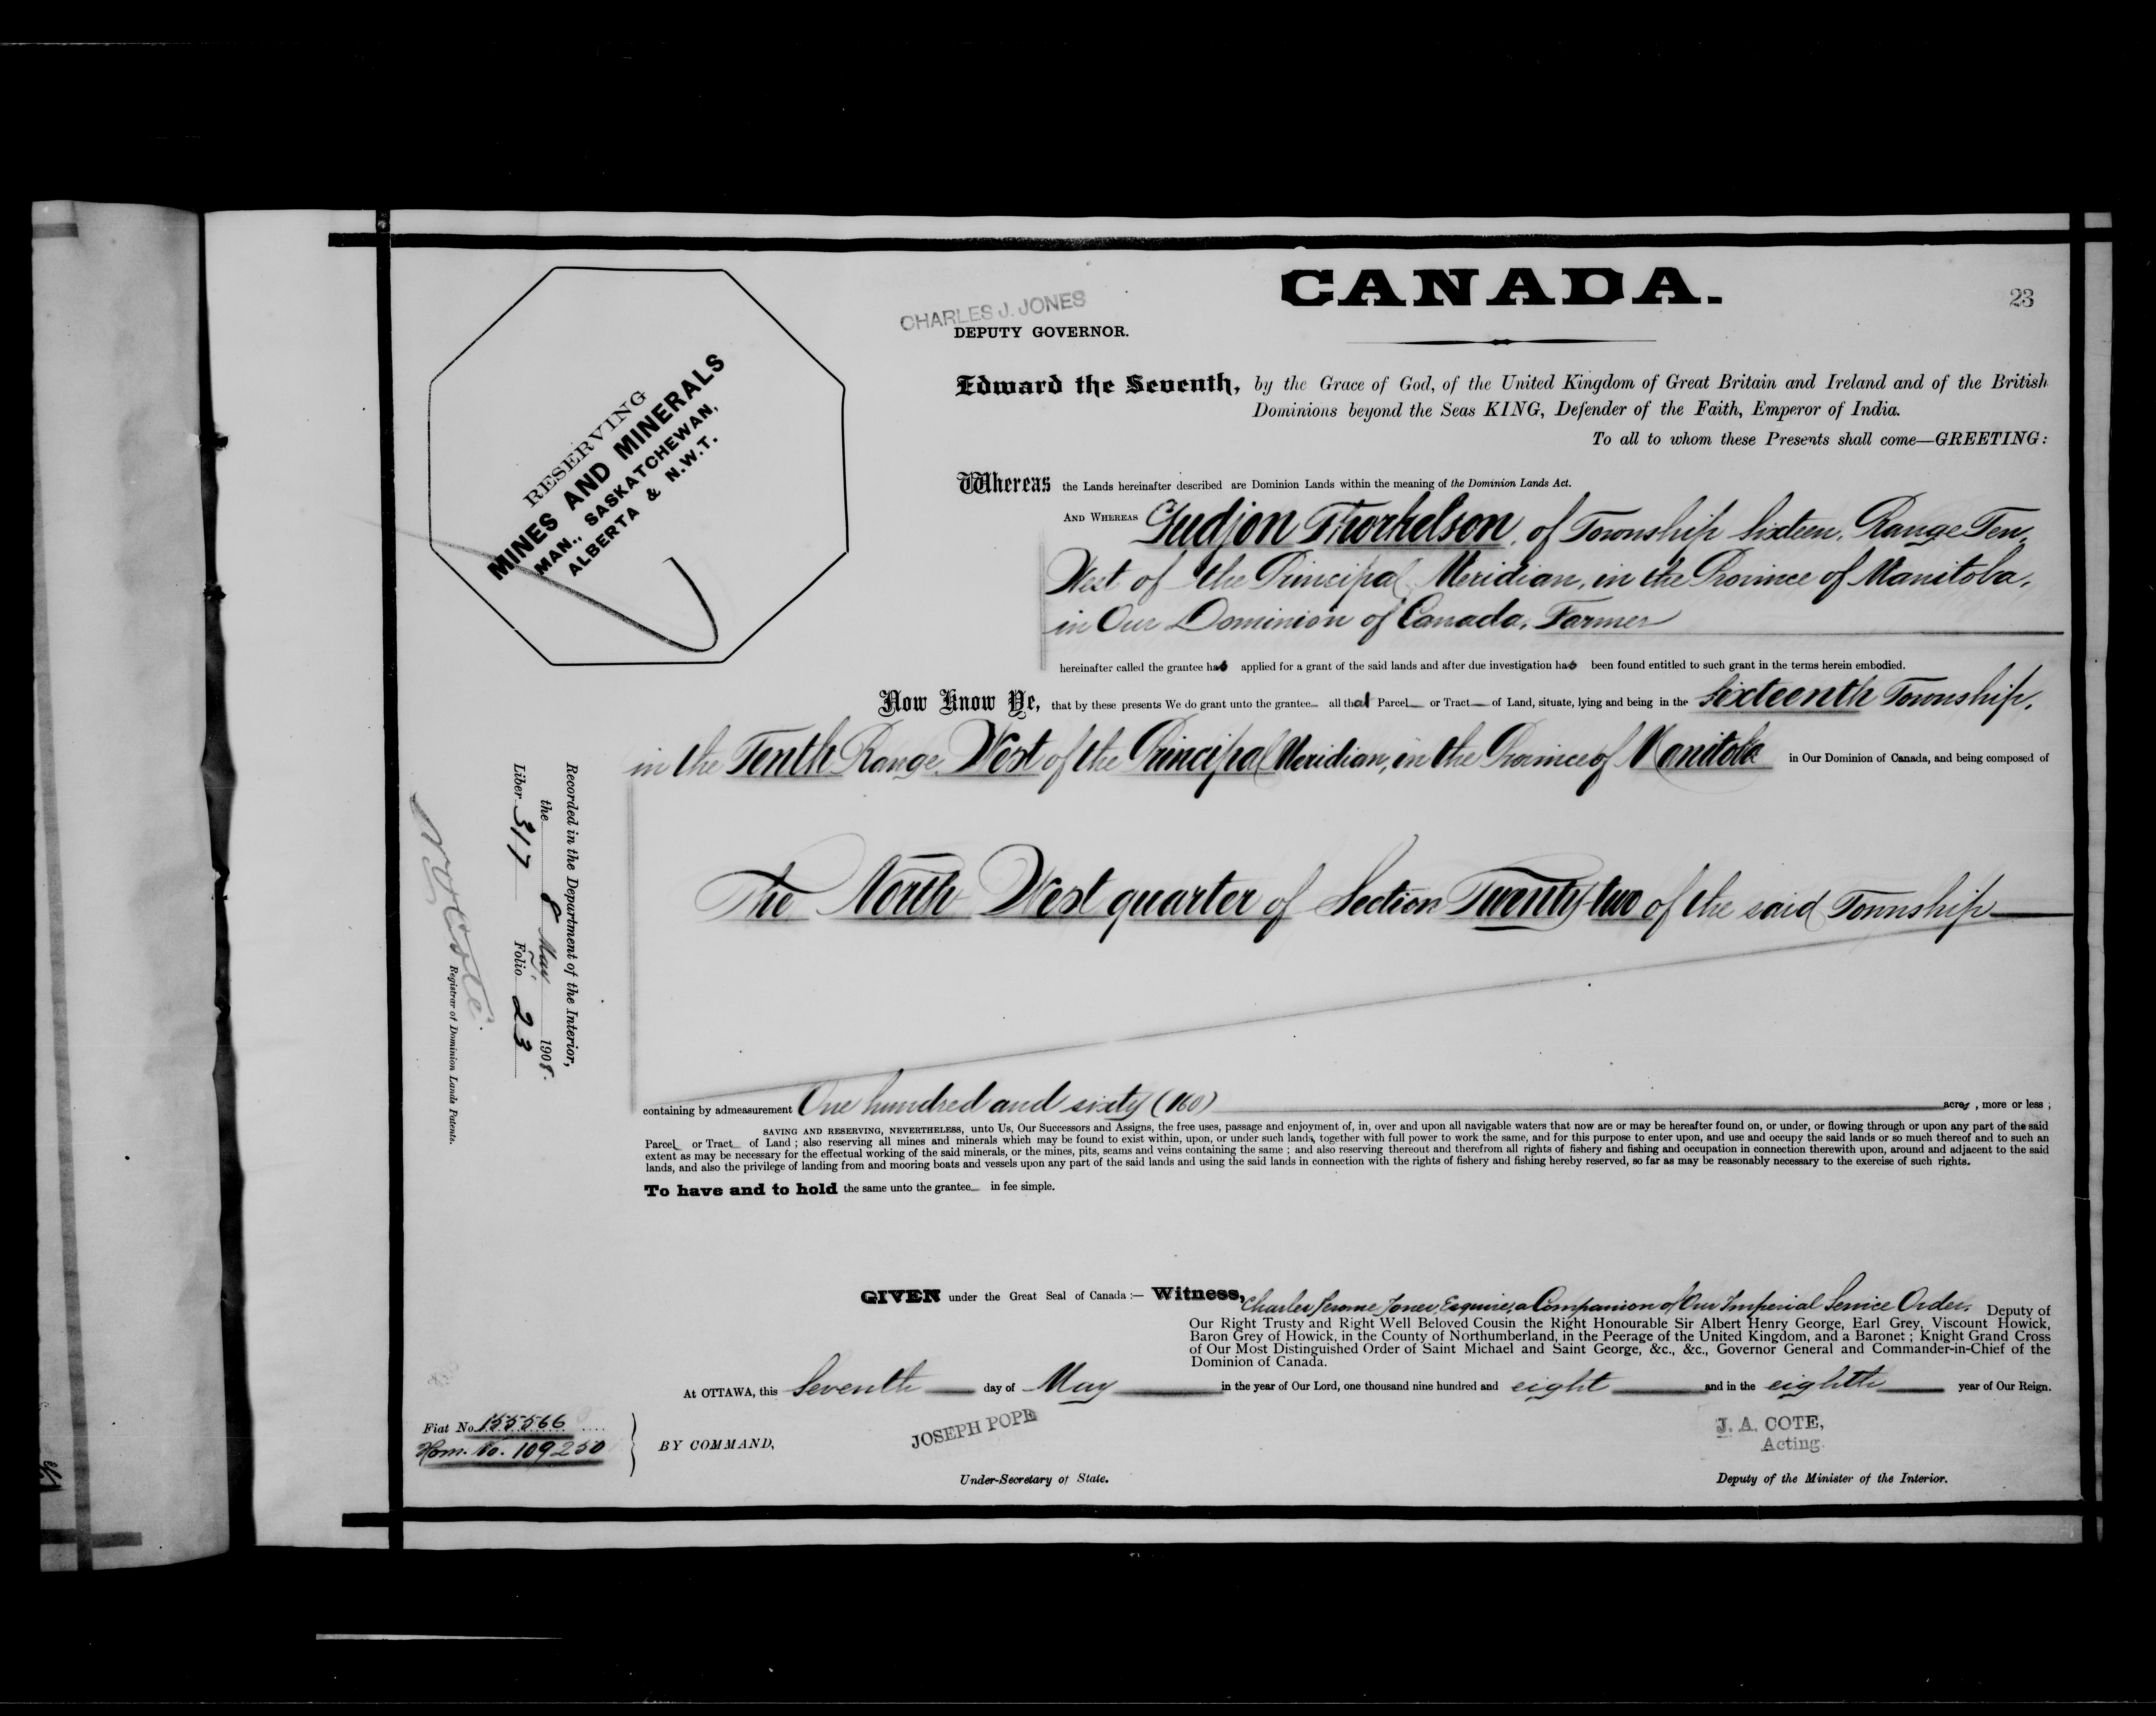 CANADA.
23
CHARLES J. JONES
DEPUTY GOVERNOR.
RESERVING
MINES AND MINERALS
MAN., SASKATCHEWAN,
ALBERTA & N.W.T.
Edward the Seventh, by the Grace of God, of the United Kingdom of Great Britain and Ireland and of the British
Dominions beyond the Seas KING, Defender of the Faith, Emperor of India.
To all to whom these Presents shall come—GREETING:
Whereas the Lands hereinafter described are Dominion Lands within the meaning of the Dominion Lands Act.
AND WHEREAS Gudjon Thorkelson, of Township Sixteen, Range Ten,
West of the Principal Meridian, in the Province of Manitoba,
in Our Dominion of Canada, Farmer
hereinafter called the grantee has applied for a grant of the said lands and after due investigation has been found entitled to such grant in the terms herein embodied.
Now Know Ye, that by these presents We do grant unto the grantee all that Parcel or Tract of Land, situate, lying and being in the Sixteenth Township,
in the Tenth Range West of the Principal Meridian, in the Province of Manitoba in Our Dominion of Canada, and being composed of
The North West quarter of Section Twenty-two of the said Township
containing by admeasurement One hundred and sixty (160) acres, more or less ;
SAVING AND RESERVING, NEVERTHELESS, unto Us, Our Successors and Assigns, the free uses, passage and enjoyment of, in, over and upon all navigable waters that now are or may be hereafter found on, or under, or flowing through or upon any part of the said
Parcel or Tract of Land ; also reserving all mines and minerals which may be found to exist within, upon, or under such lands, together with full power to work the same, and for this purpose to enter upon, and use and occupy the said lands or so much thereof and to such an
extent as may be necessary for the effectual working of the said minerals, or the mines, pits, seams and veins containing the same ; and also reserving thereout and therefrom all rights of fishery and fishing and occupation in connection therewith upon, around and adjacent to the said
lands, and also the privilege of landing from and mooring boats and vessels upon any part of the said lands and using the said lands in connection with the rights of fishery and fishing hereby reserved, so far as may be reasonably necessary to the exercise of such rights.
To have and to hold the same unto the grantee in fee simple.
Recorded in the Department of the Interior,
the 8 May 1908.
Liber 317 Folio 23
N. O. Coté
Registrar of Dominion Lands Patents.
GIVEN under the Great Seal of Canada :— Witness, Charles Jerome Jones, Esquire, a Companion of Our Imperial Service Order, Deputy of
Our Right Trusty and Right Well Beloved Cousin the Right Honourable Sir Albert Henry George, Earl Grey, Viscount Howick,
Baron Grey of Howick, in the County of Northumberland, in the Peerage of the United Kingdom, and a Baronet ; Knight Grand Cross
of Our Most Distinguished Order of Saint Michael and Saint George, &c., &c., Governor General and Commander-in-Chief of the
Dominion of Canada.
At OTTAWA, this Seventh day of May in the year of Our Lord, one thousand nine hundred and eight and in the eighth year of Our Reign.
Fiat No. 155566
Hom. No. 109250
BY COMMAND,
JOSEPH POPE
Under-Secretary of State.
J. A. COTE,
Acting
Deputy of the Minister of the Interior.